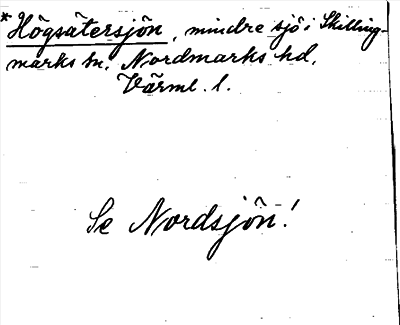 * Högsätersjön, mindre sjö i Skilling-
marks sn, Nordmarks hd,
Värml. l.
Se Nordsjön!